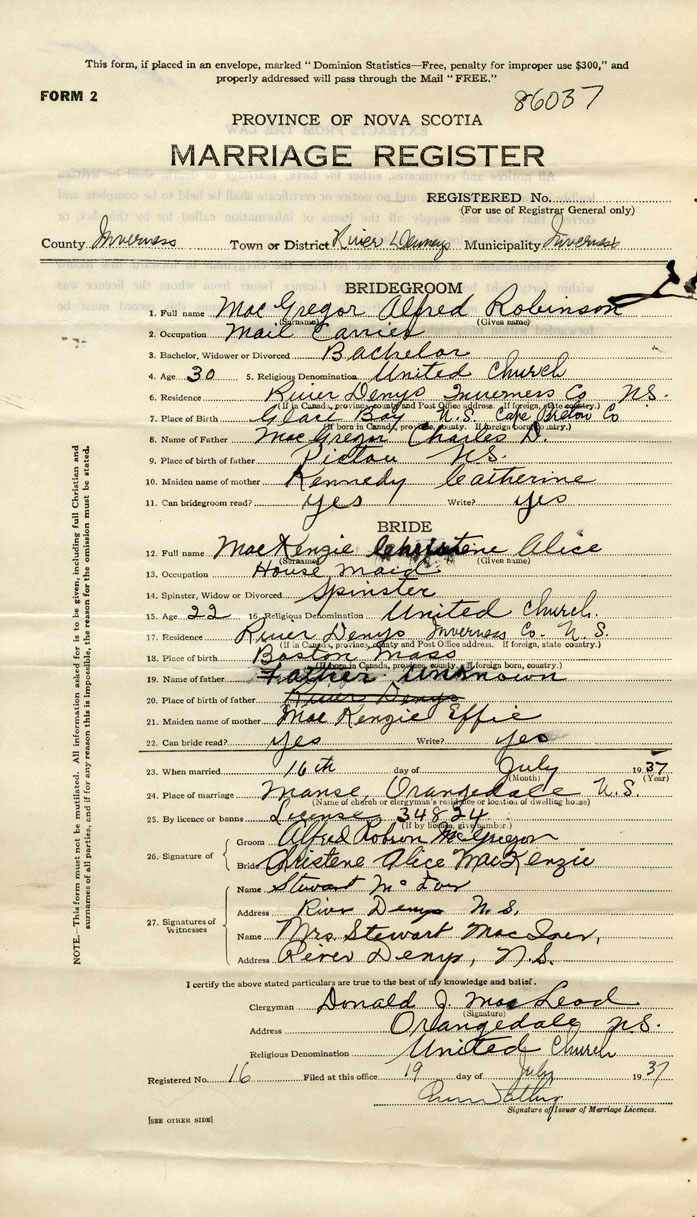 This form, if placed in an envelope, marked "Dominion Statistics—Free, penalty for improper use $300," and
properly addressed will pass through the Mail "FREE."
FORM 2
86037
PROVINCE OF NOVA SCOTIA
MARRIAGE REGISTER
REGISTERED No.
(For use of Registrar General only)
County Inverness Town or District River Dennys Municipality Inverness
BRIDEGROOM
1. Full name MacGregor Alfred Robinson
(Surname) (Given name)
2. Occupation Mail Carrier
3. Bachelor, Widower or Divorced Bachelor
4. Age 30 5. Religious Denomination United Church
6. Residence River Denys Inverness Co N.S.
(If in Canada, province, county and Post Office address. If foreign, state country.)
7. Place of Birth Glace Bay N.S. Cape Breton Co
(If born in Canada, province, county. If foreign born, country.)
8. Name of Father MacGregor Charles D.
9. Place of birth of father Pictou N.S.
10. Maiden name of mother Kennedy Catherine
11. Can bridegroom read? yes Write? yes
BRIDE
12. Full name MacKenzie Christene Alice
(Surname) (Given name)
13. Occupation House maid
14. Spinster, Widow or Divorced Spinster
15. Age 22 16. Religious Denomination United Church.
17. Residence River Denys Inverness Co. N.S.
(If in Canada, province, county and Post Office address. If foreign, state country.)
18. Place of birth Boston Mass
(If born in Canada, province, county. If foreign born, country.)
19. Name of father Father Unknown
20. Place of birth of father River Denys
21. Maiden name of mother MacKenzie Effie
22. Can bride read? yes Write? yes
23. When married 16th day of July 1937
(Month) (Year)
24. Place of marriage Manse, Orangedale N.S.
(Name of church or clergyman's residence or location of dwelling house)
25. By licence or banns License 34824
(If by licence, give number.)
26. Signature of
Groom Alfred Robson McGregor
Bride Christene Alice MacKenzie
27. Signatures of Witnesses
Name Stewart McIver
Address River Denys N.S.
Name Mrs Stewart MacIver,
Address River Denys, N.S.
I certify the above stated particulars are true to the best of my knowledge and belief.
Clergyman Donald J. MacLeod
(Signature)
Address Orangedale N.S.
Religious Denomination United Church
Registered No. 16 Filed at this office 19 day of July 1937
Signature of Issuer of Marriage Licences.
[SEE OTHER SIDE]
NOTE.—This form must not be mutilated. All information asked for is to be given, including full Christian and
surnames of all parties, and if for any reason this is impossible, the reason for the omission must be stated.